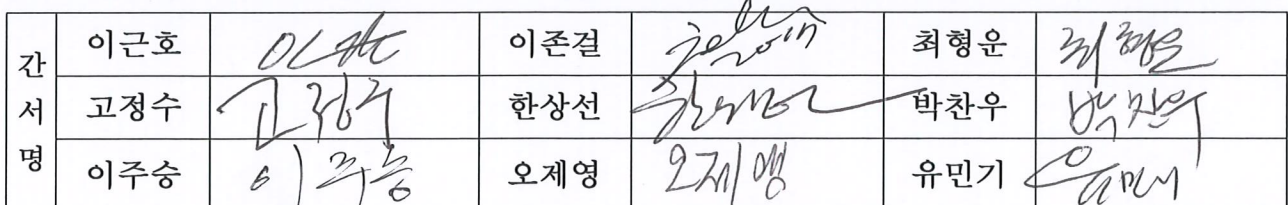 간서명
이근호 이존걸 최형운 최형운
고정수 고정수 한상선 한상선 박찬우 박찬우
이주승 이주승 오제영 오제영 유민기 유민기